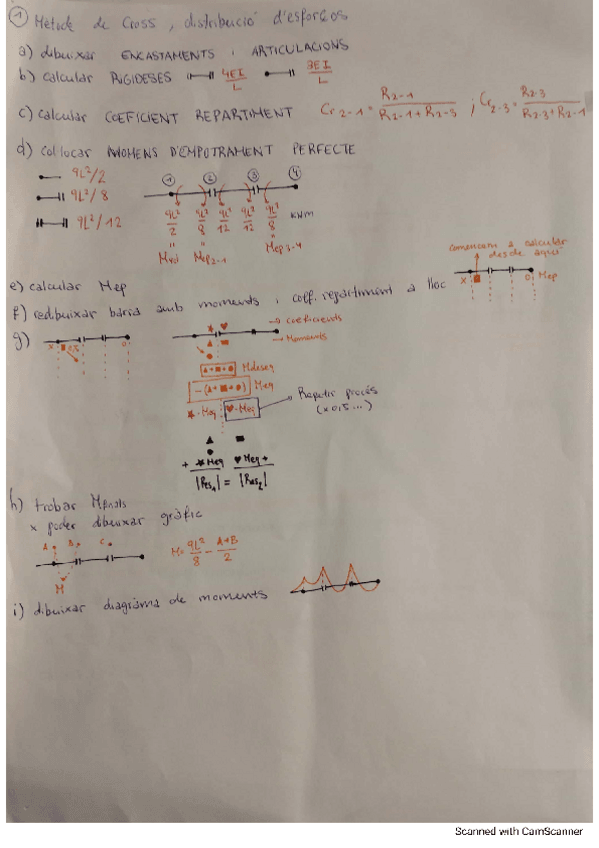 ① Mètode de Cross, distribució d'esforços
a) dibuixar ENCASTAMENTS i ARTICULACIONS
b) calcular RIGIDESES 4EI/L 3EI/L
c) calcular COEFICIENT REPARTIMENT Cr2-1 = R2-1 / R2-1+R2-3 ; Cr2-3 = R2-3 / R2-3+R2-1
d) collocar MOMENS D'EMPOTRAMENT PERFECTE
qL²/2
qL²/8
qL²/12
① ② ③ ④
qL²/2 qL²/8 qL²/12 qL²/12 qL²/8 kNm
Mvol Mep2-1 Mep3-4
comencem a calcular
desde aquí
x 0 Mep
e) calcular Mep
f) redibuixar barra amb moments i coeff. repartiment a lloc
g) x 0
→ coeficients
→ Moments
▲+■+● Mdeseq
-(▲+■+●) Meq
★·Meq ♥·Meq
Repetir procés
(x 0,5...)
+ ★Meq ♥Meq +
|Res1| = |Res2|
h) trobar Mfinals
x poder dibuixar gràfic
A B C
M
M = qL²/8 - A+B/2
i) dibuixar diagrama de moments
Scanned with CamScanner